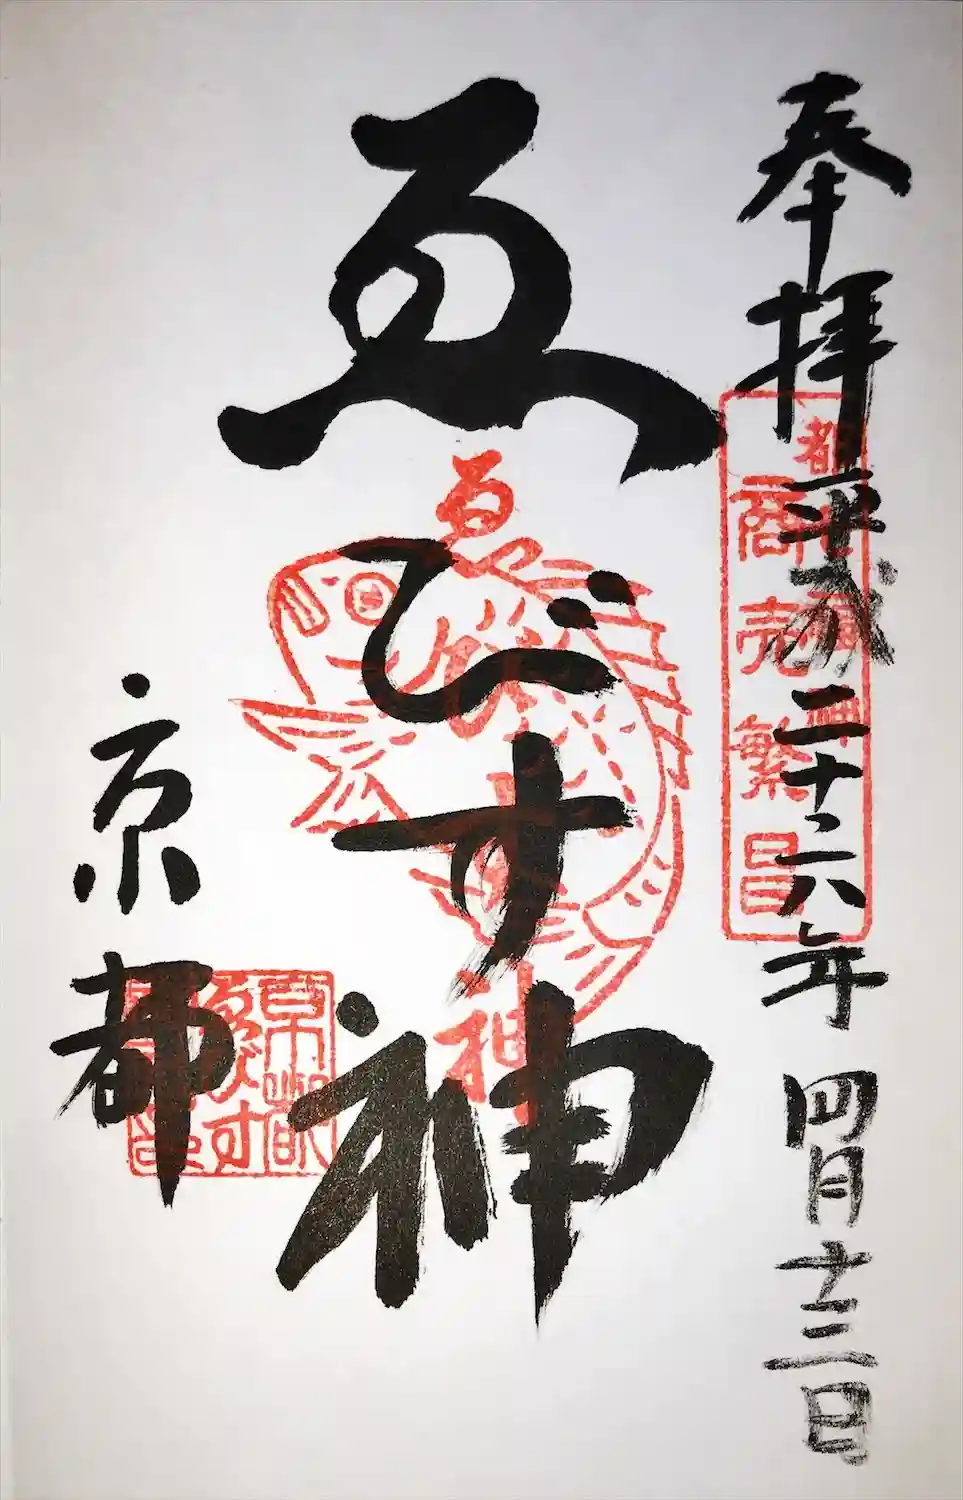 奉拝 平成二十六年 四月十三日
都
商売繁昌
ゑびす神
ゑびす神
京都
ゑびす